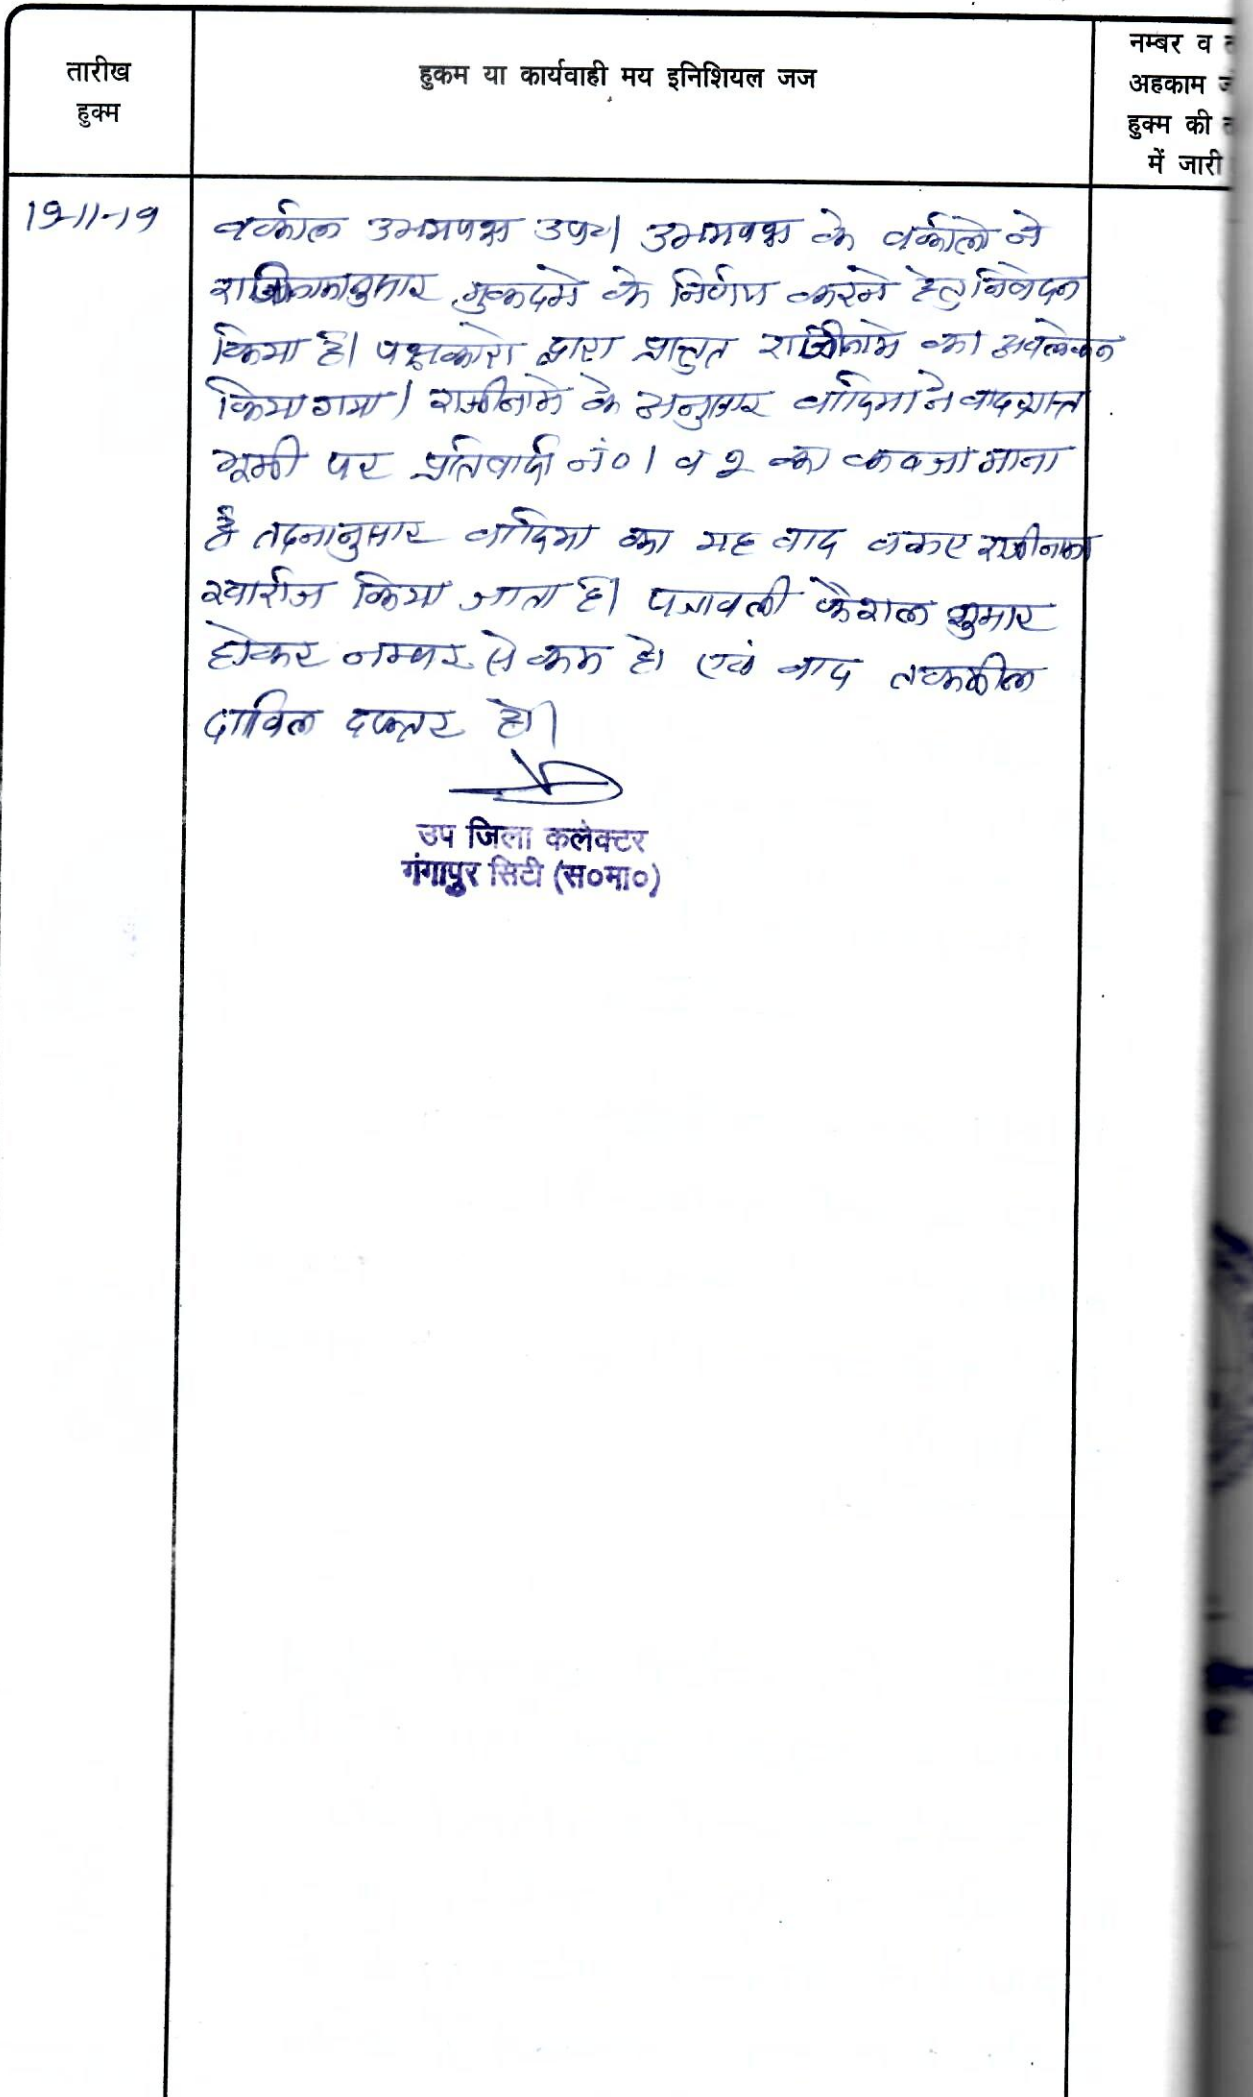 तारीख
हुक्म
हुकम या कार्यवाही मय इनिशियल जज
नम्बर व
अहकाम
हुक्म की
में जारी
19-11-19
वकील उभयपक्ष उप०। उभयपक्ष के वकीलो ने
राजीनामानुसार मुकदमे के निर्णय करने हेतु निवेदन
किया है। पक्षकारो द्वारा प्रस्तुत राजीनामे का अवलोकन
किया गया। राजीनामे के अनुसार वादिया ने वादग्रस्त
भूमी पर प्रतिवादी नं० 1 व 2 का कबजा माना
है तदनानुसार वादिया का यह वाद बरूए राजीनामा
खारीज किया जाता है। पत्रावली फैशल शुमार
होकर नम्बर से कम हो एवं बाद तकमील
दाखिल दफ्तर हो।
उप जिला कलेक्टर
गंगापुर सिटी (स०मा०)